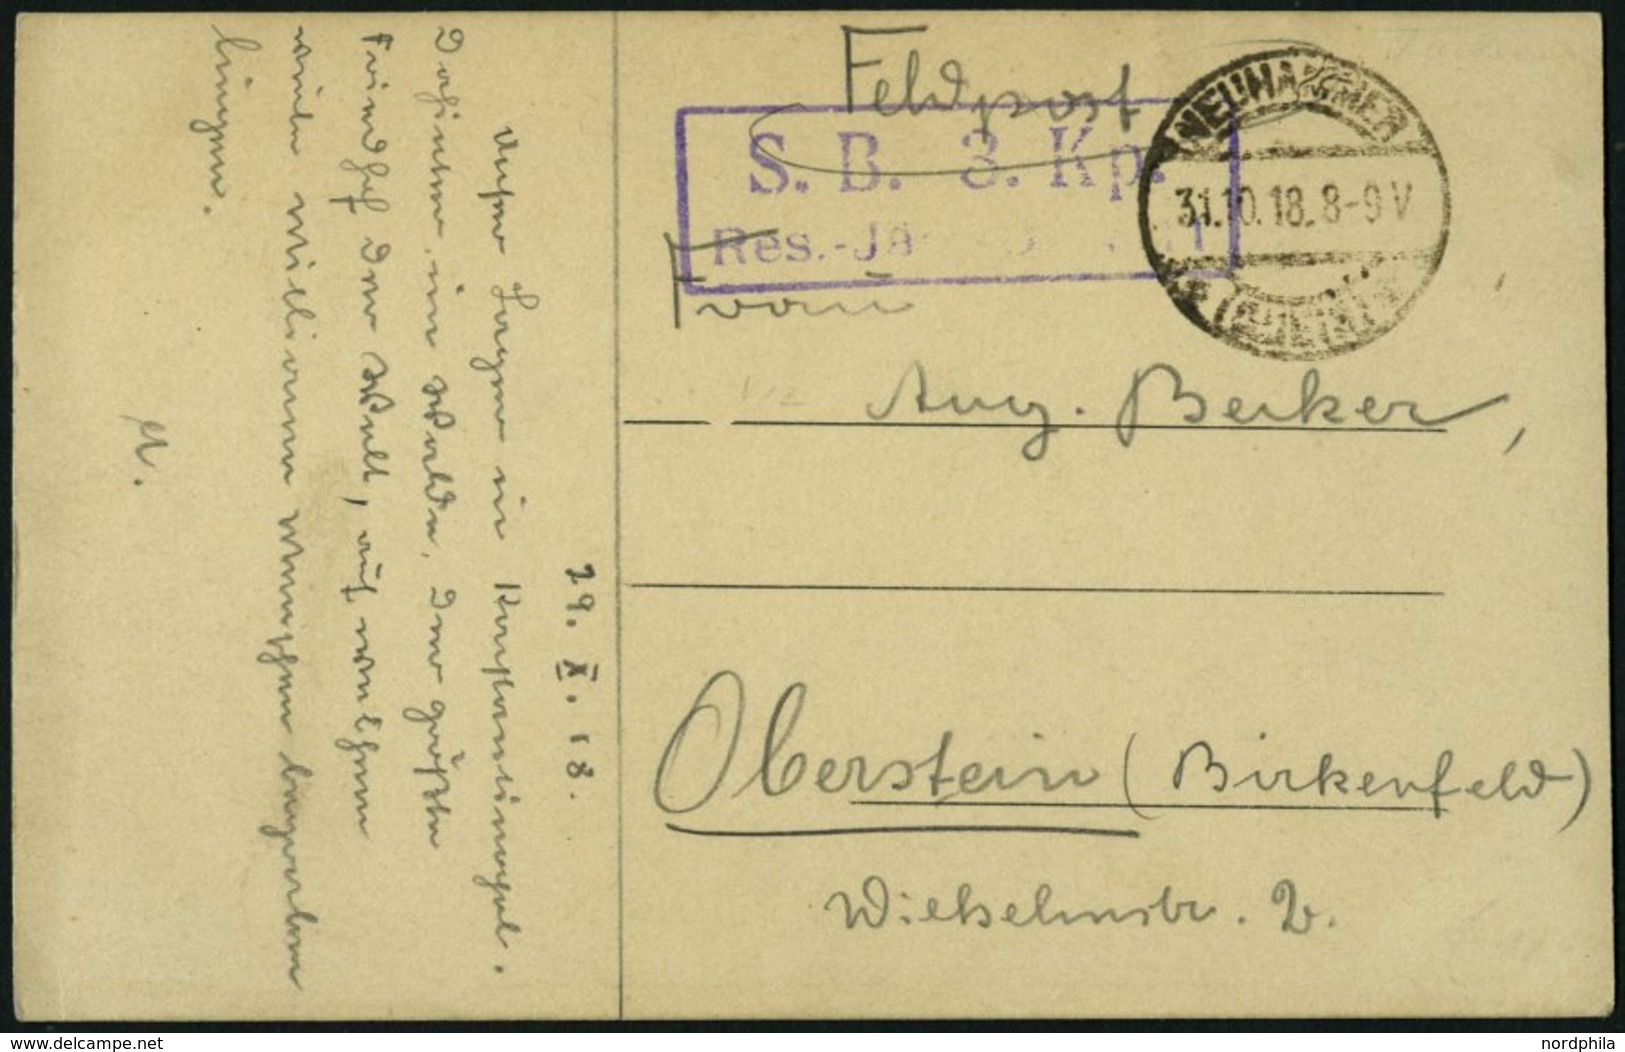 Feldpost
S. B. 3. Kp.
Res.-Jä
NEUHAMMER
31.10.18. 8-9 V
(QUEIS)
Frau
Aug. Becker,
Oberstein (Birkenfeld)
Wilhelmstr. 2.
29. X. 18.
Unser Lager in Konstantinopel.
Dahinter, im Walde, der größte
Friedhof der Welt, auf welchem
viele Millionen Menschen begraben
liegen.
A.
delcampe.net
nordphila